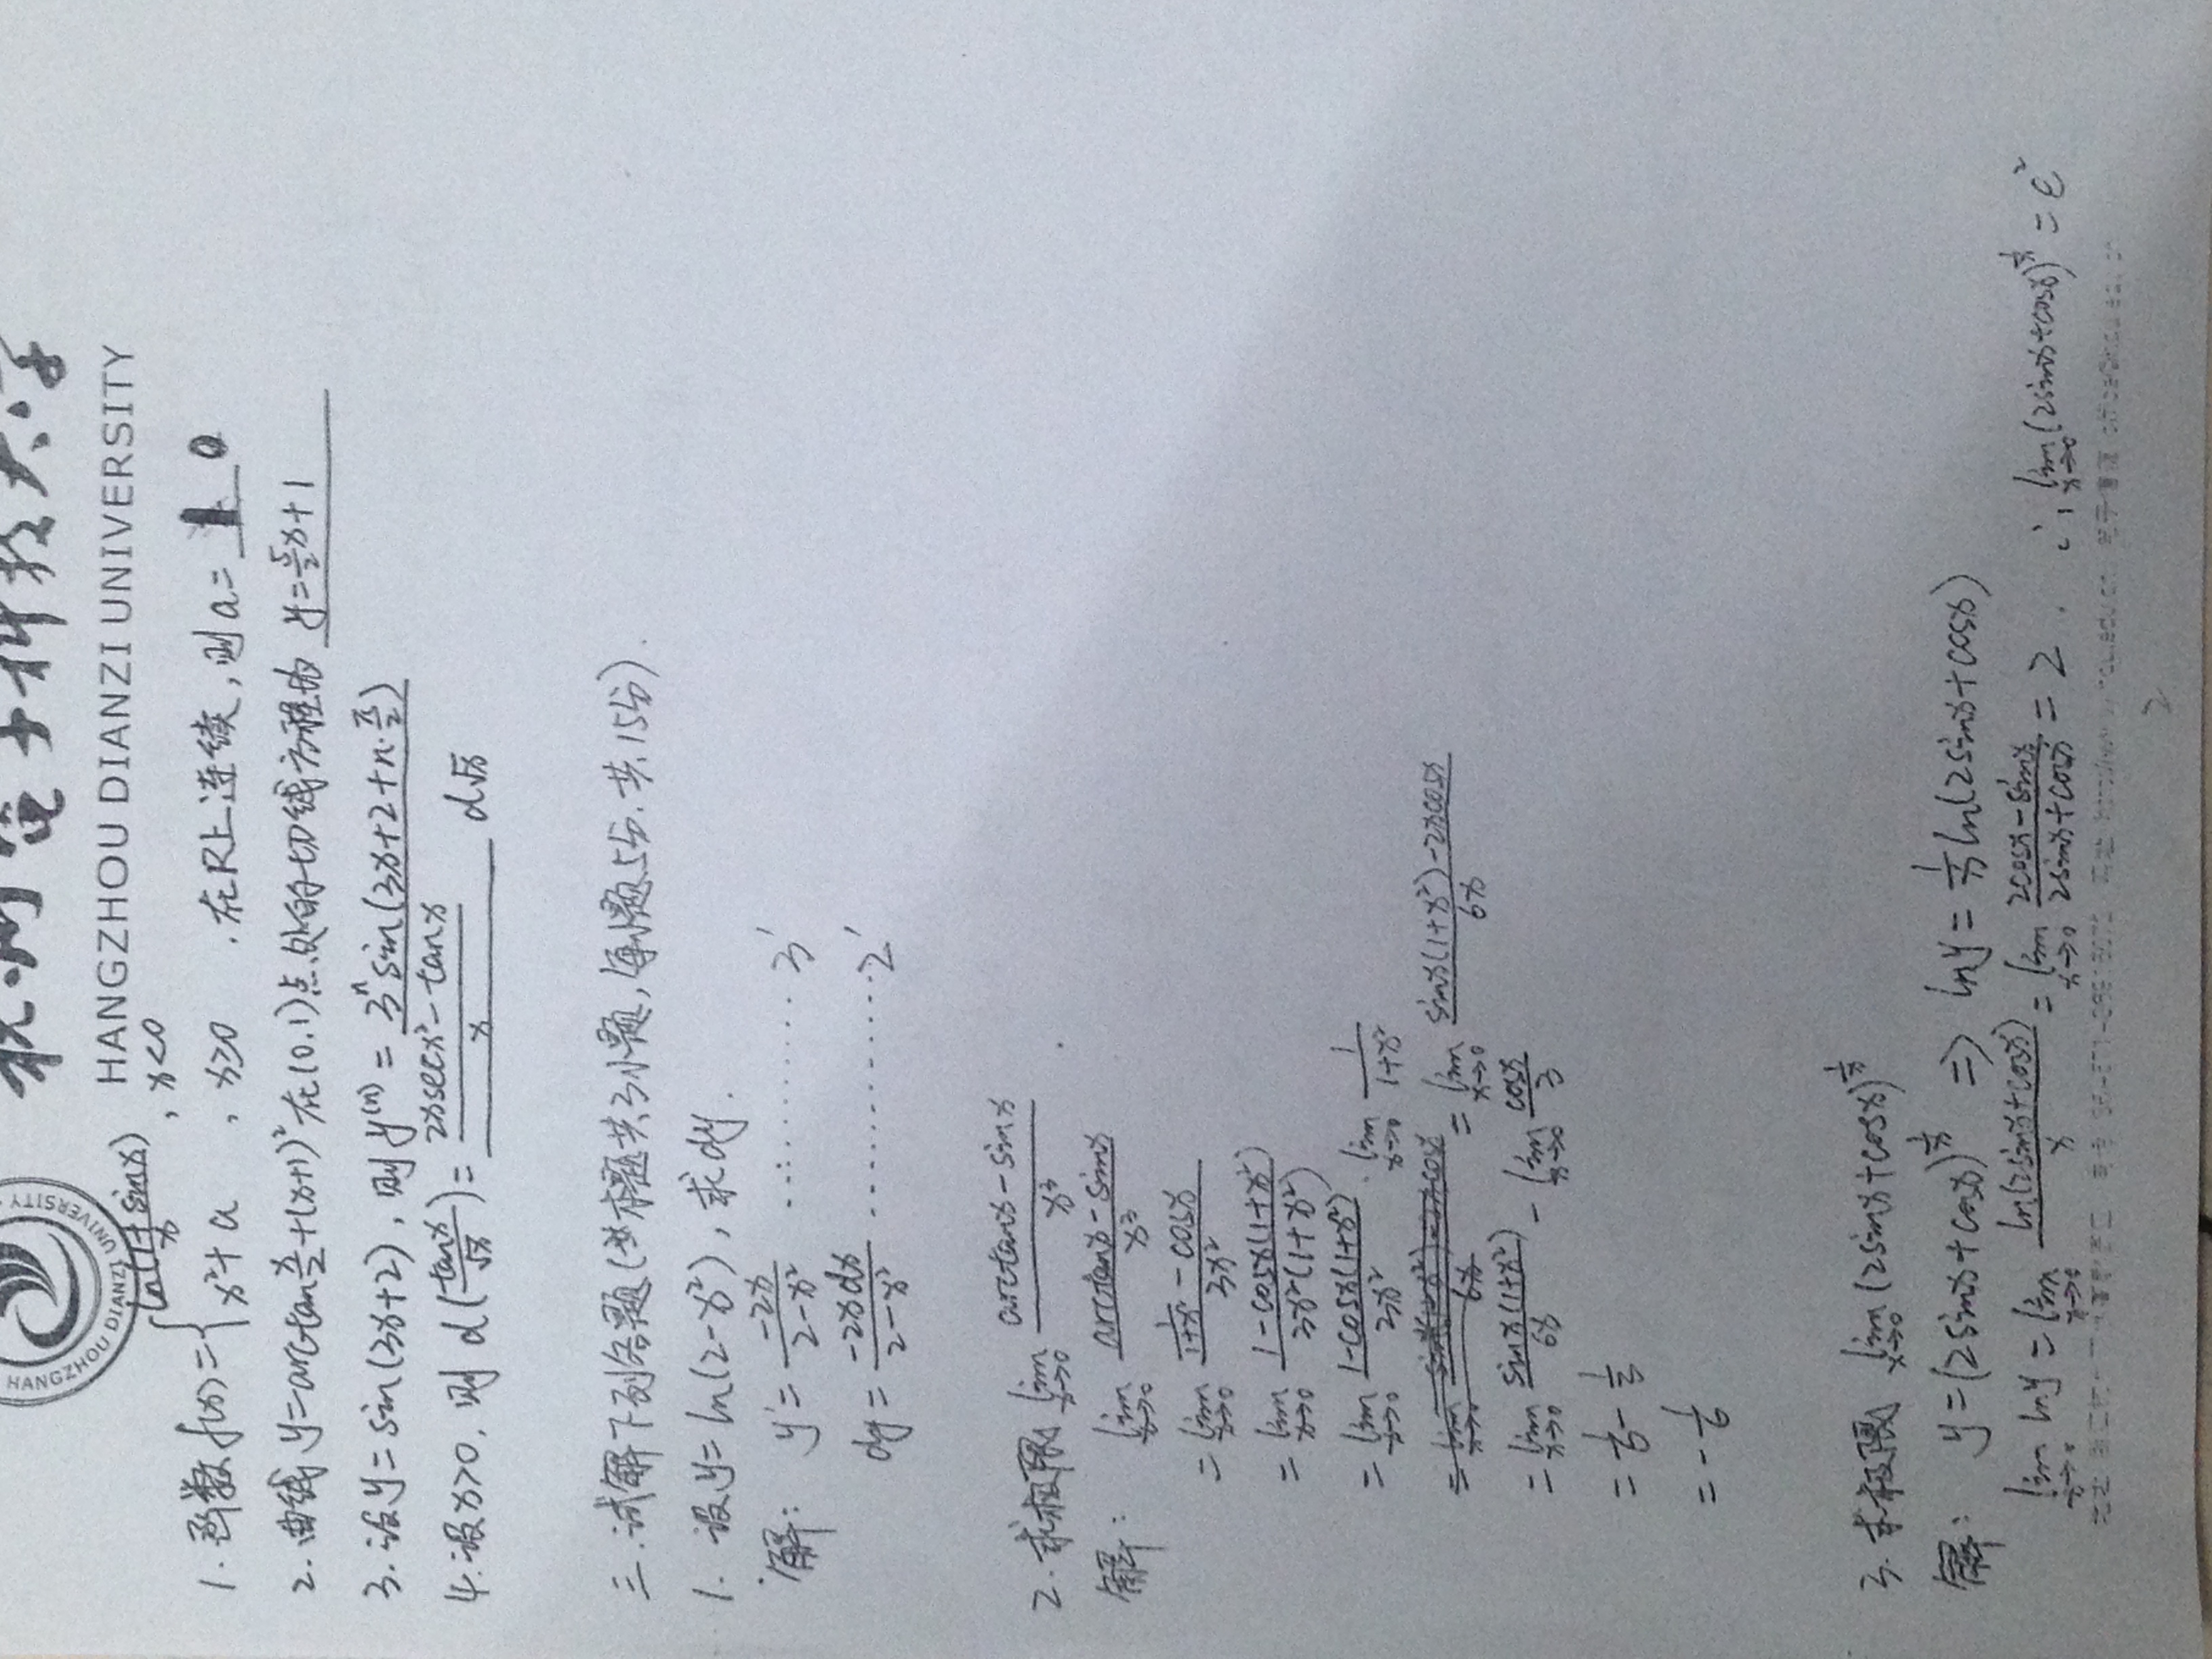 杭州电子科技大学
HANGZHOU DIANZI UNIVERSITY
HANGZHOU DIANZI UNIVERSITY
1. 函数f(x)={ ln(1+sinx)/x , x<0
x²+a , x≥0 . 在R上连续,则a= 1 0
2. 曲线 y=arctan x/2+(x+1)² 在(0,1)点处的切线方程为 y=5/2x+1
3. 设y=sin(3x+2), 则y⁽ⁿ⁾= 3ⁿsin(3x+2+n·π/2)
4. 设x>0, 则 d(tanx/√x)= (2xsecx²-tanx)/x d√x
三. 试解下列各题(本题共3小题,每小题5分.共15分).
1. 设y=ln(2-x²), 求dy.
解: y'= -2x/(2-x²) ............ 3'
dy= -2xdx/(2-x²) ............ 2'
2. 求极限 lim x→0 (arctanx-sinx)/x³ .
解: lim x→0 (arctanx-sinx)/x³
= lim x→0 (1/(1+x²)-cosx)/3x²
= lim x→0 (1-cosx(1+x²))/(3x²(1+x²))
= lim x→0 (1-cosx(1+x²))/3x² · lim x→0 1/(1+x²)
= lim x→0 (sinx(1+x²)-2xcosx)/6x
= lim x→0 sinx(1+x²)/6x - lim x→0 cosx/3
= 1/6 - 1/3
= -1/6
3. 求极限 lim x→0 (2sinx+cosx)^(1/x)
解: y=(2sinx+cosx)^(1/x) ⇒ lny=1/x ln(2sinx+cosx)
lim x→0 lny = lim x→0 ln(2sinx+cosx)/x = lim x→0 (2cosx-sinx)/(2sinx+cosx) = 2 . ∴ lim x→0 (2sinx+cosx)^(1/x) = e²
2